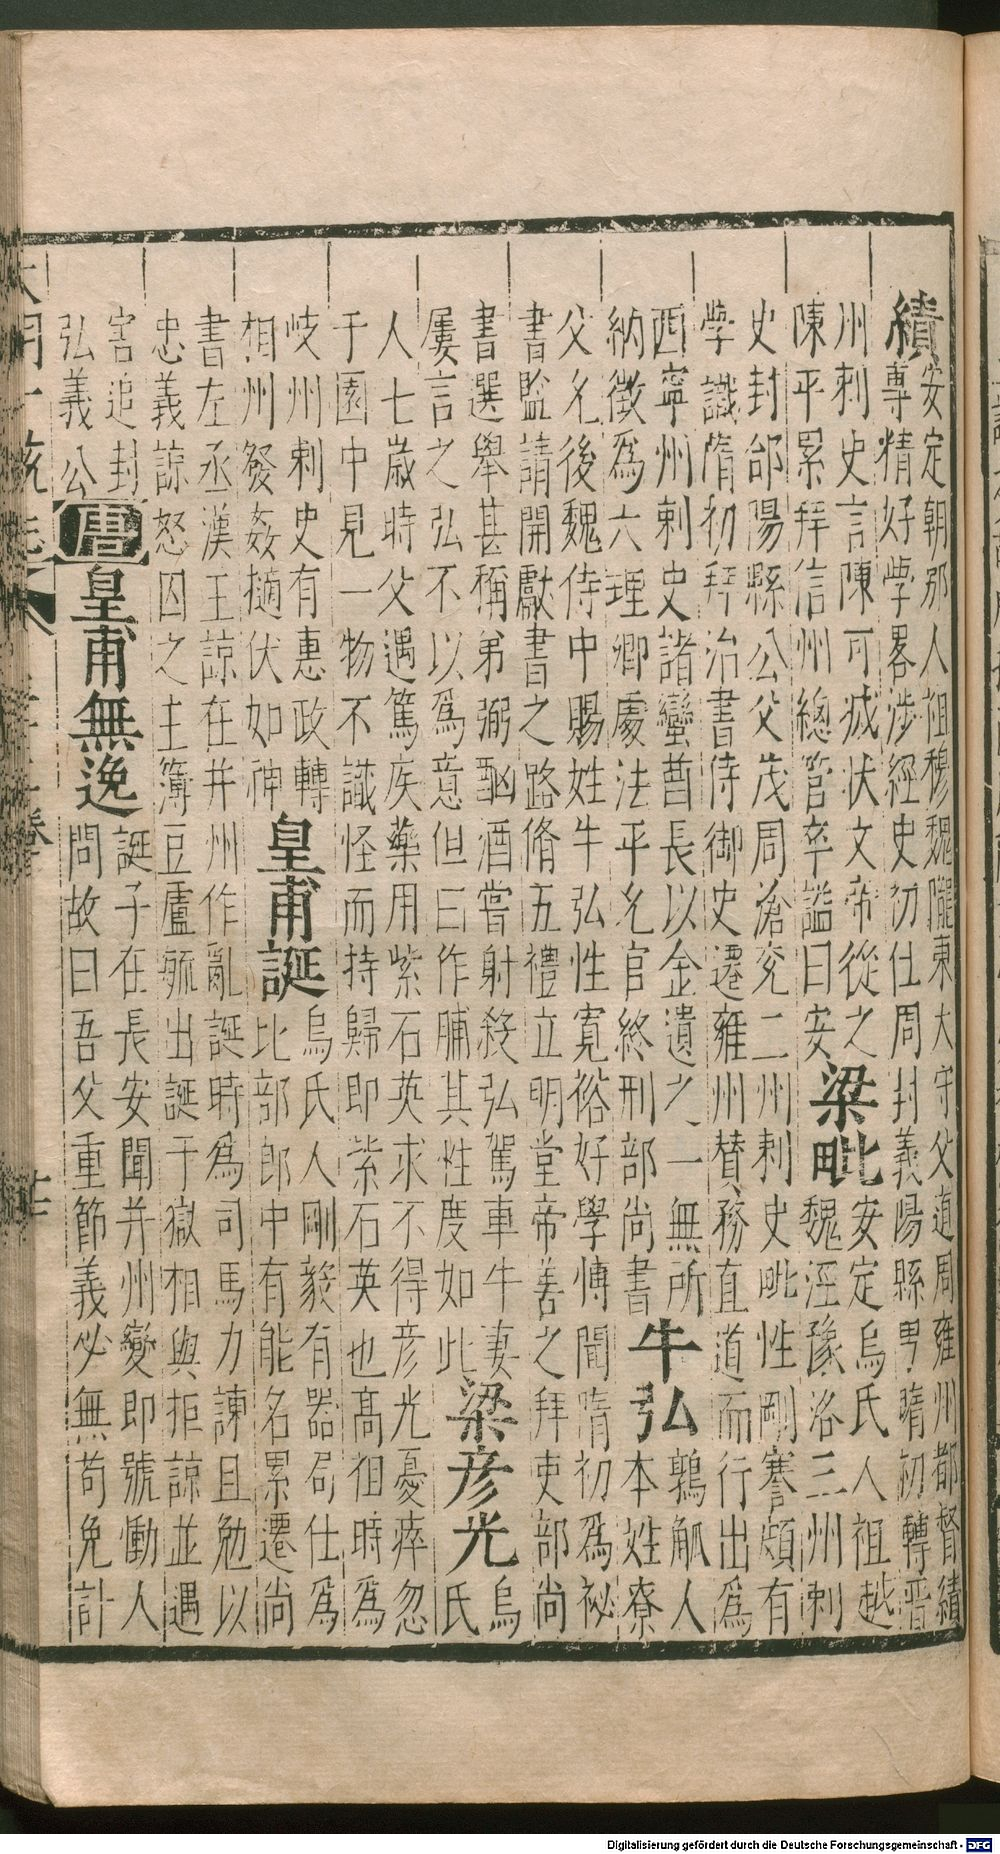 績
安定朝那人祖穆魏隴東太守父道周雍州都督績
專精好學畧涉經史初仕周封義陽縣男隋初轉晋
州刺史言陳可㓕狀文帝從之
陳平累拜信州總管卒謚曰安
梁毗
安定烏氏人祖越
魏涇豫洛三州刺
史封郃陽縣公父茂周滄兖二州刺史毗性剛謇頗有
學識隋初拜治書侍御史遷雍州賛務直道而行出為
西寧州刺史諸蠻酋長以金遺之一無所
納徴為六理卿處法平允官終刑部尚書
牛弘
鶉觚人
本姓寮
父允後魏侍中賜姓牛弘性寛裕好學愽聞隋初為祕
書監請開獻書之路脩五禮立明堂帝善之拜吏部尚
書選舉甚稱弟弼酗酒嘗射殺弘駕車牛妻
屢言之弘不以為意但曰作脯其性度如此
梁彦光
烏
氏
人七歲時父遇篤疾藥用紫石英求不得彦光憂瘁忽
于園中見一物不識怪而持歸即紫石英也髙祖時為
岐州刺史有惠政轉
相州發姦擿伏如神
皇甫誕
烏氏人剛毅有器局仕為
比部郎中有能名累遷尚
書左丞漢王諒在并州作亂誕時為司馬力諫且勉以
忠義諒怒囚之主簿豆盧毓出誕于獄相與拒諒並遇
害追封
弘義公
唐
皇甫無逸
誕子在長安聞并州變即號慟人
問故曰吾父重節義必無苟免計
大明一統志
Digitalisierung gefördert durch die Deutsche Forschungsgemeinschaft - DFG